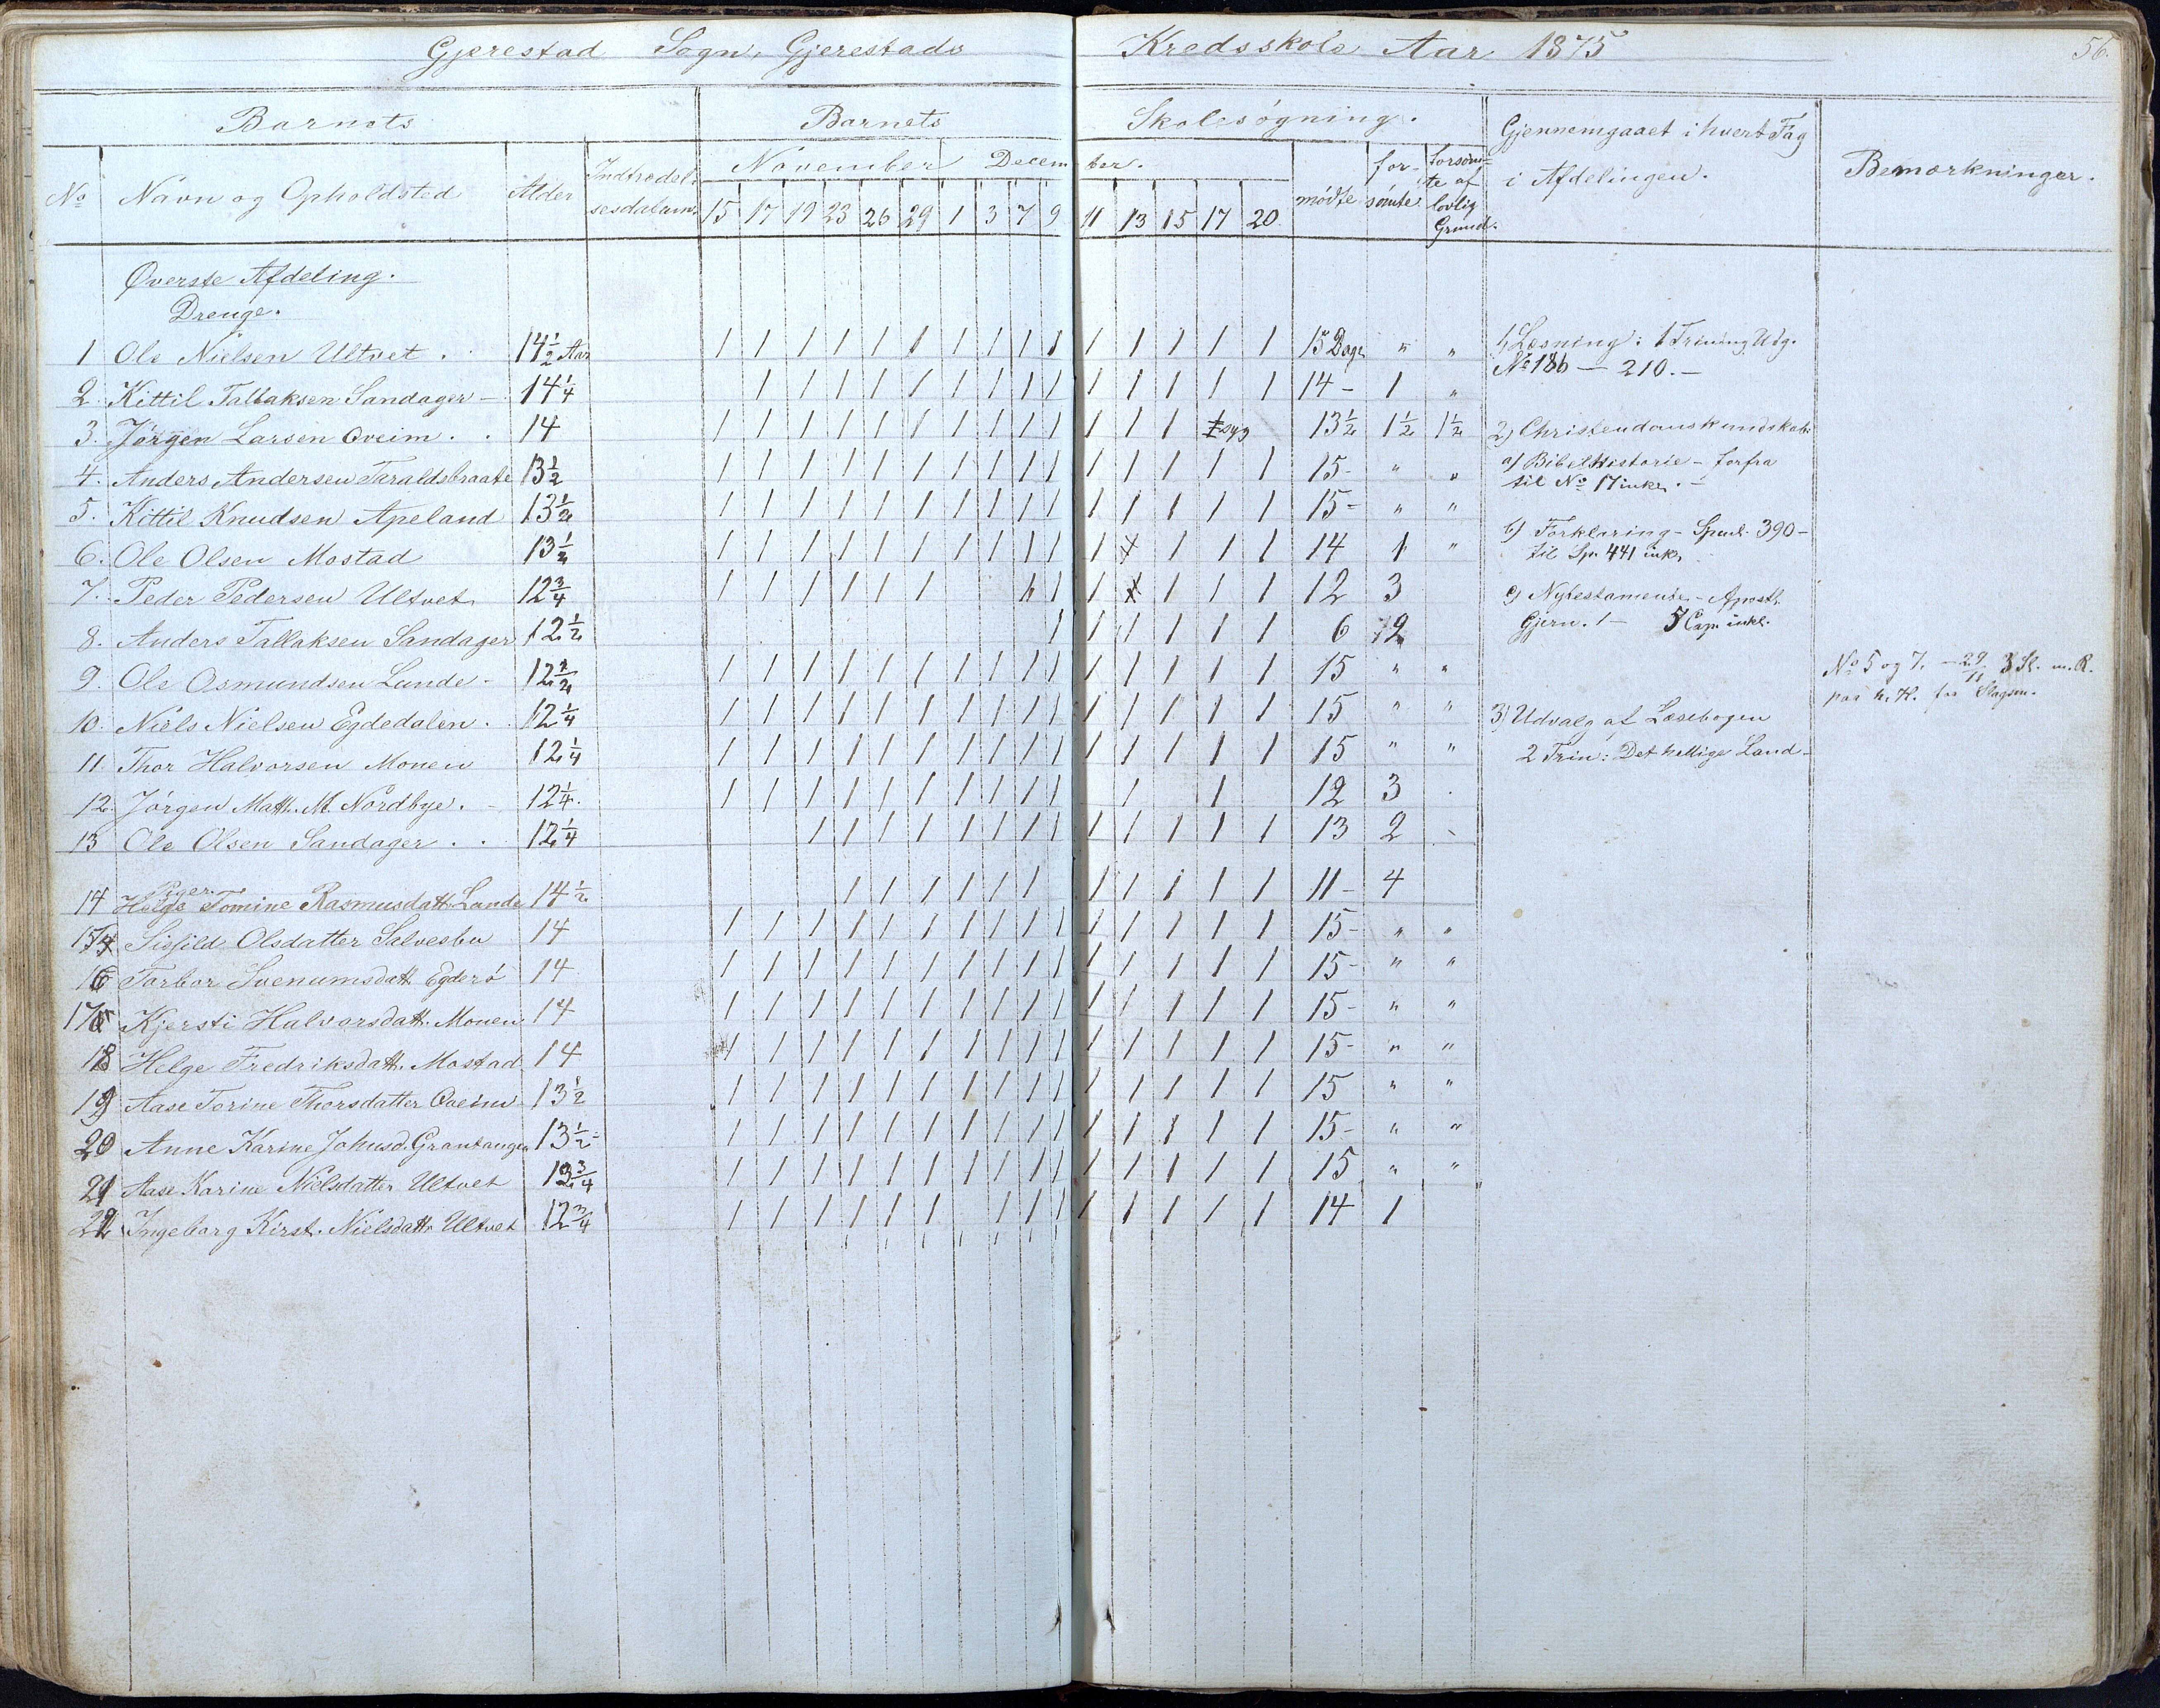 Gjerestad Sogn, Gjerestads Kredsskole Aar 1875 56.
Barnets Barnets Skolesøgning. Gjennemgaaet i hvert Fag i Afdelingen. Bemærkninger.
No Navn og Opholdsted Alder Indtrædelsesdatum. November December. mødte forsømte forsømte af lovlig Grund.
15 17 19 23 26 29 1 3 7 9 11 13 15 17 20
Øverste Afdeling.
Drenge.
1 Ole Nielsen Ultvet . 14 1/2 Aar 1 1 1 1 1 1 1 1 1 1 1 1 1 1 1 15 Dage " "
2. Kittil Tallaksen Sandager - 14 1/4 1 1 1 1 1 1 1 1 1 1 1 1 1 1 14 - 1 "
3. Jørgen Larsen Oveim . . 14 1 1 1 1 1 1 1 1 1 1 1 1 1 syg 13 1/2 1 1/2 1 1/2
4. Anders Andersen Taraldsbraate 13 1/2 1 1 1 1 1 1 1 1 1 1 1 1 1 1 1 15 - " "
5. Kittil Knudsen Apeland 13 1/2 1 1 1 1 1 1 1 1 1 1 1 1 1 1 1 15 - " "
6. Ole Olsen Mostad 13 1/2 1 1 1 1 1 1 1 1 1 1 1 1 1 1 14 1 "
7. Peder Pedersen Ultvet 12 3/4 1 1 1 1 1 1 1 1 1 1 1 12 3
8. Anders Tallaksen Sandager 12 1/2 1 1 1 1 1 1 6
9. Ole Osmundsen Lunde - 12 1/2 1 1 1 1 1 1 1 1 1 1 1 1 1 1 1 15 " "
10. Niels Nielsen Egdedalen . 12 1/4 1 1 1 1 1 1 1 1 1 1 1 1 1 1 1 15 " "
11. Thor Halvorsen Monen 12 1/4 1 1 1 1 1 1 1 1 1 1 1 1 1 1 1 15 " "
12. Jørgen Math. M. Nordbye. - 12 1/4. 1 1 1 1 1 1 1 1 1 1 1 1 12 3
13 Ole Olsen Sandager . . 12 1/4 1 1 1 1 1 1 1 1 1 1 1 1 1 13 2
Piger.
14 Helge Tomine Rasmusdatt. Lunde 14 1/2 1 1 1 1 1 1 1 1 1 1 1 11 - 4
15 Sigfild Olsdatter Salvesbu 14 1 1 1 1 1 1 1 1 1 1 1 1 1 1 1 15 - " "
16 Torbor Svenumsdatt. Egderø 14 1 1 1 1 1 1 1 1 1 1 1 1 1 1 1 15 - " "
17 Kjersti Halvorsdatt. Monen 14 1 1 1 1 1 1 1 1 1 1 1 1 1 1 1 15 - " "
18 Helge Fredriksdatt. Mostad 14 1 1 1 1 1 1 1 1 1 1 1 1 1 1 1 15 - " "
19 Aase Torine Thorsdatter Oveim 13 1/2 1 1 1 1 1 1 1 1 1 1 1 1 1 1 1 15 " "
20 Anne Karine Johnsd. Grantangen 13 1/2 - 1 1 1 1 1 1 1 1 1 1 1 1 1 1 1 15 - " "
21 Aase Karine Nielsdatter Ultvet 3/4 1 1 1 1 1 1 1 1 1 1 1 1 1 1 1 15 " "
22 Ingeborg Kirst. Nielsdatt. Ultvet 12 3/4 1 1 1 1 1 1 1 1 1 1 1 1 1 1 14 1
1, Læsning: 1 Trin Udg.
No 186 — 210. —
2, Christendomskundskab:
a) Bibelhistorie - forfra
til No 17 inkl. -
b) Forklaring - Spml. 390 -
til Sp. 441 inkl.
c) Nytestamente - Aposth.
Gjern. 1 - 5 Cap. inkl.
3) Udvalg af Læsebogen
2 Trin: Det hellige Land -
No 5 og 7. - 29/11